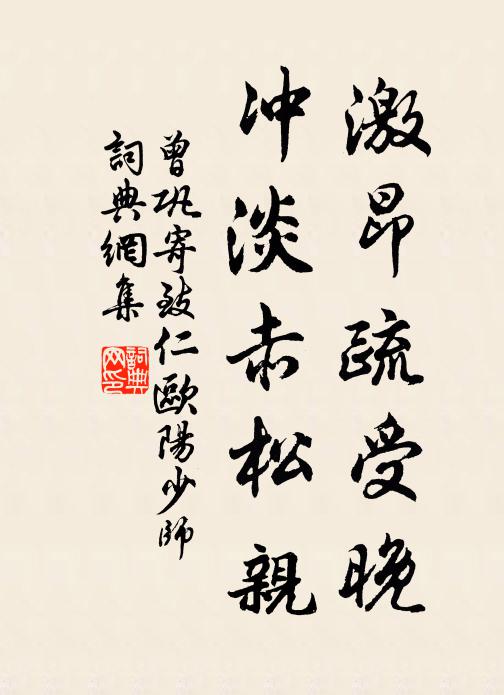 激昂疏受晚
冲淡赤松親
曾巩寄致仁歐陽少師
詞典網集
詞典
网印